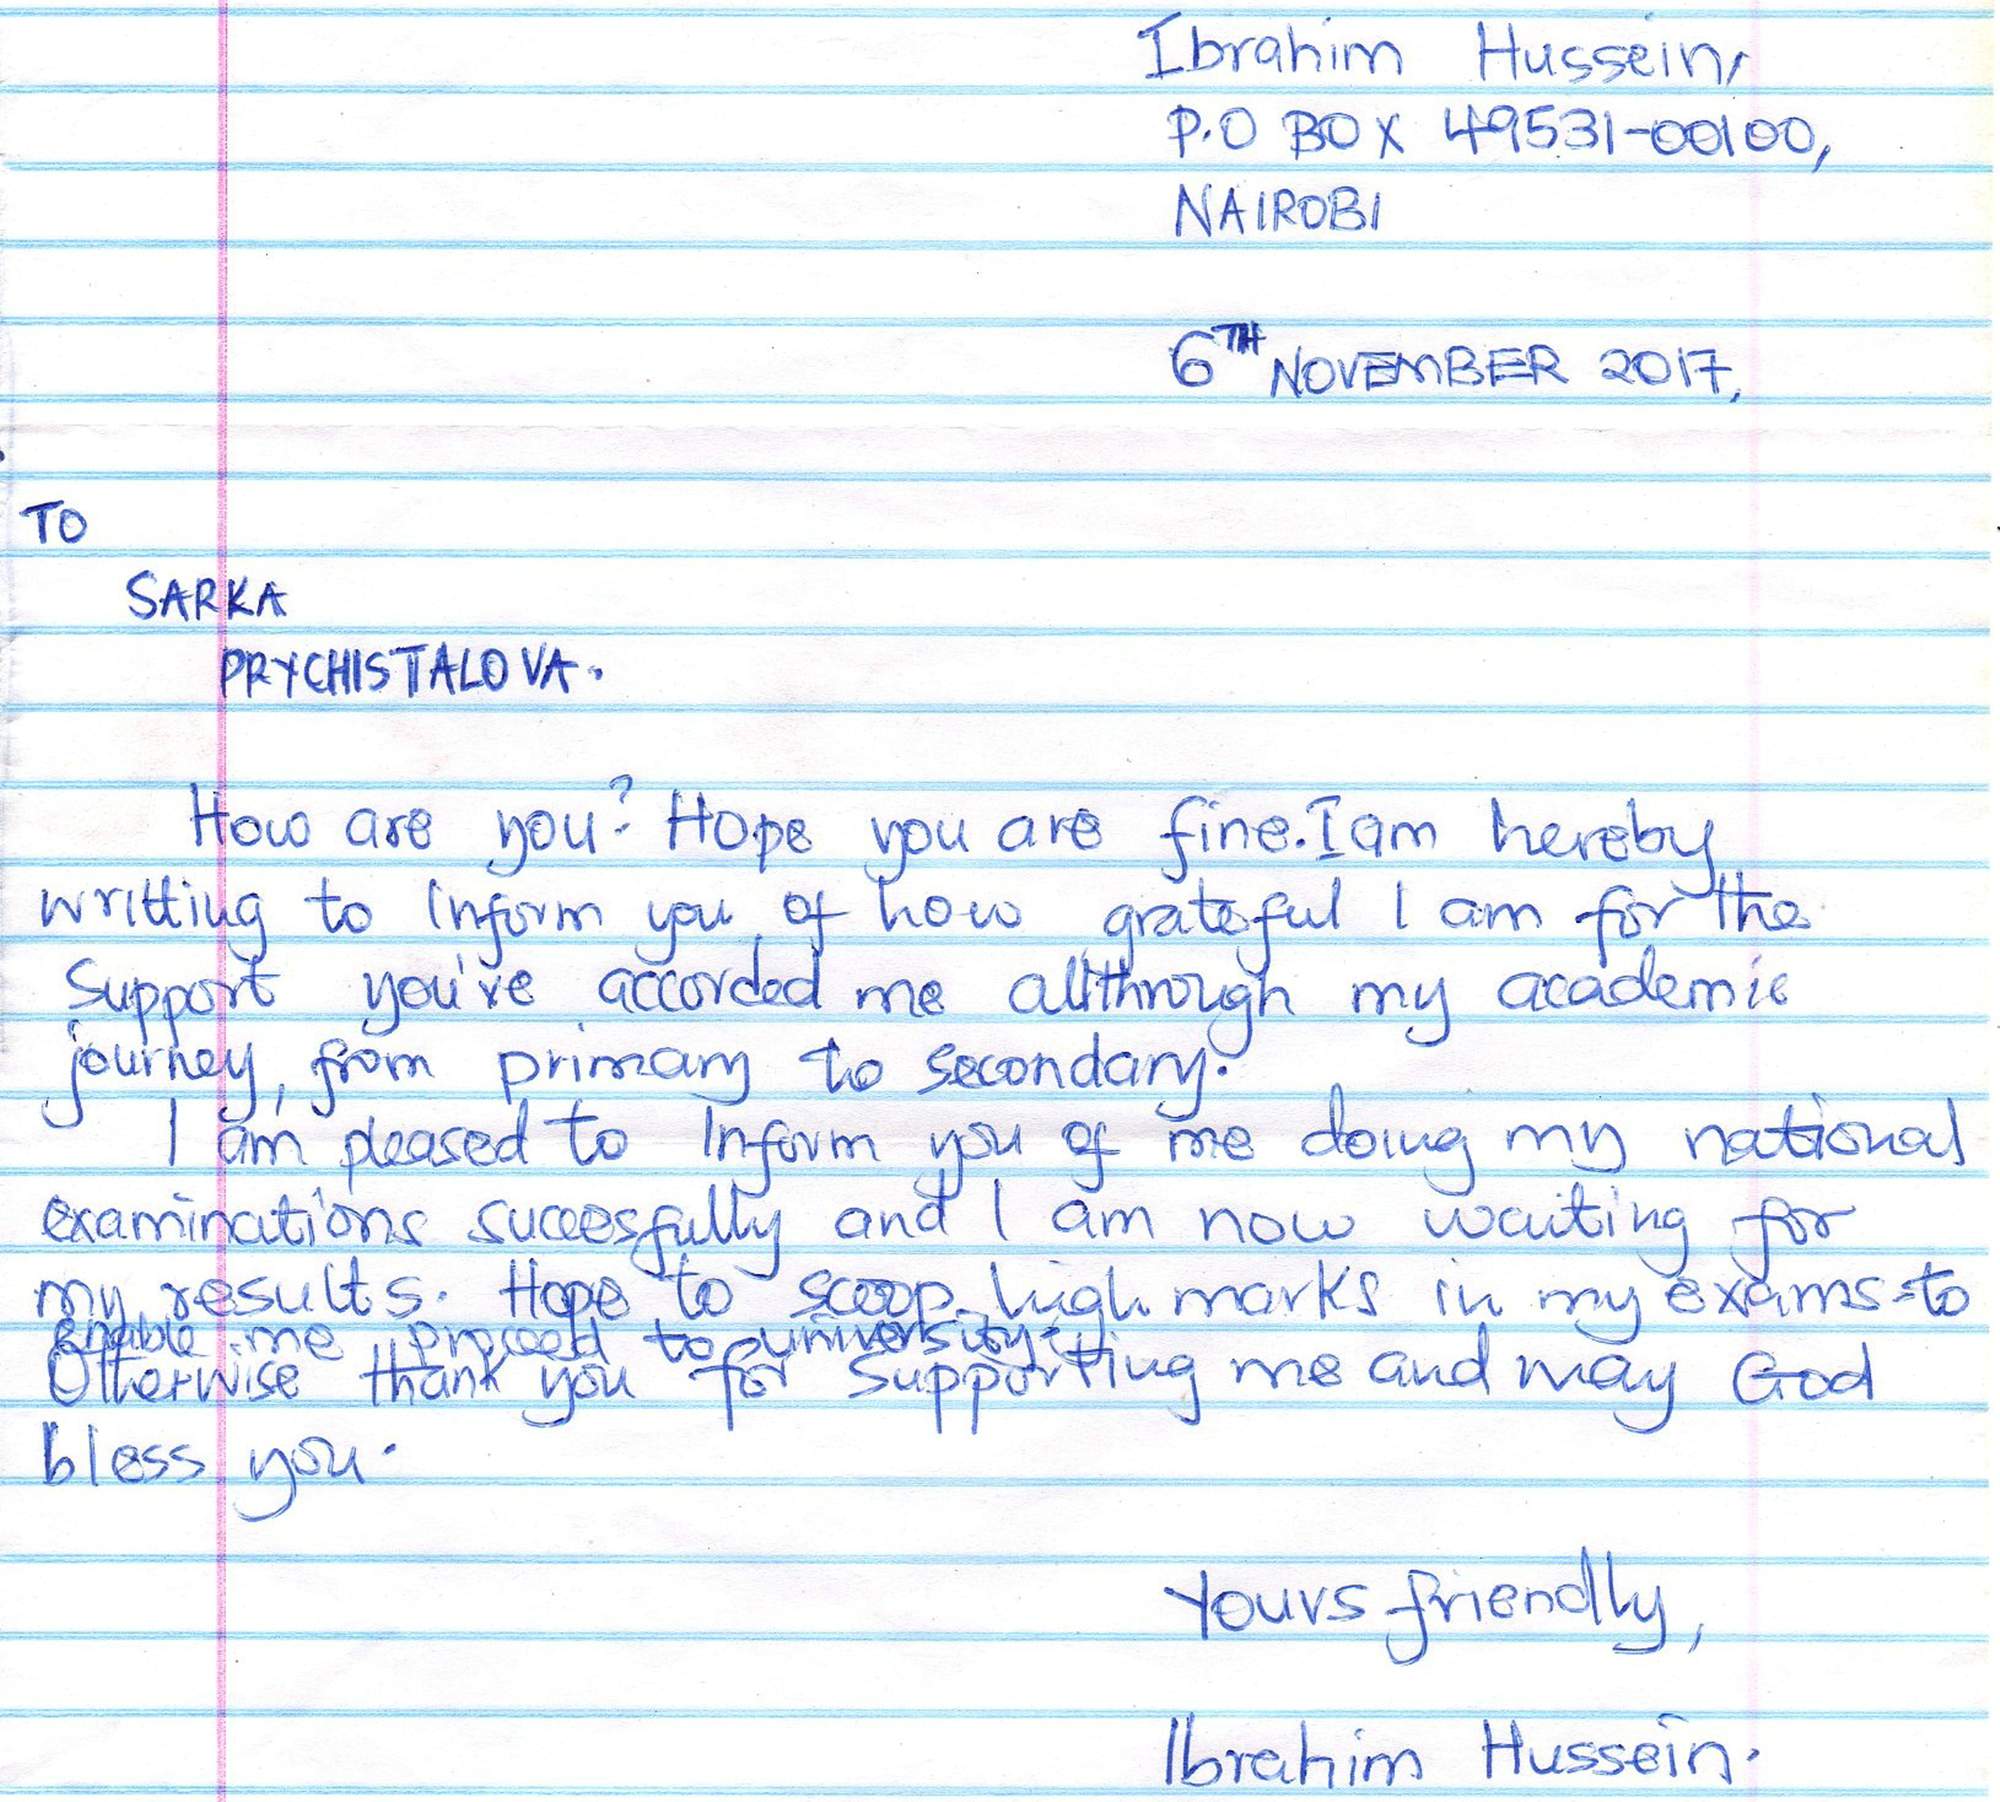 Ibrahim Hussein,
P.O BOX 49531-00100,
NAIROBI
6TH NOVEMBER 2017,
TO
SARKA
PRYCHISTALOVA.
How are you? Hope you are fine. I am hereby
writting to Inform you of how grateful I am for the
Support you've accorded me allthrough my academic
journey, from primary to secondary.
I am pleased to Inform you of me doing my national
examinations succesfully and I am now waiting for
my results. Hope to scoop high marks in my exams to
enable me proceed to university.
Otherwise thank you for Supporting me and may God
bless you.
Yours friendly,
Ibrahim Hussein.